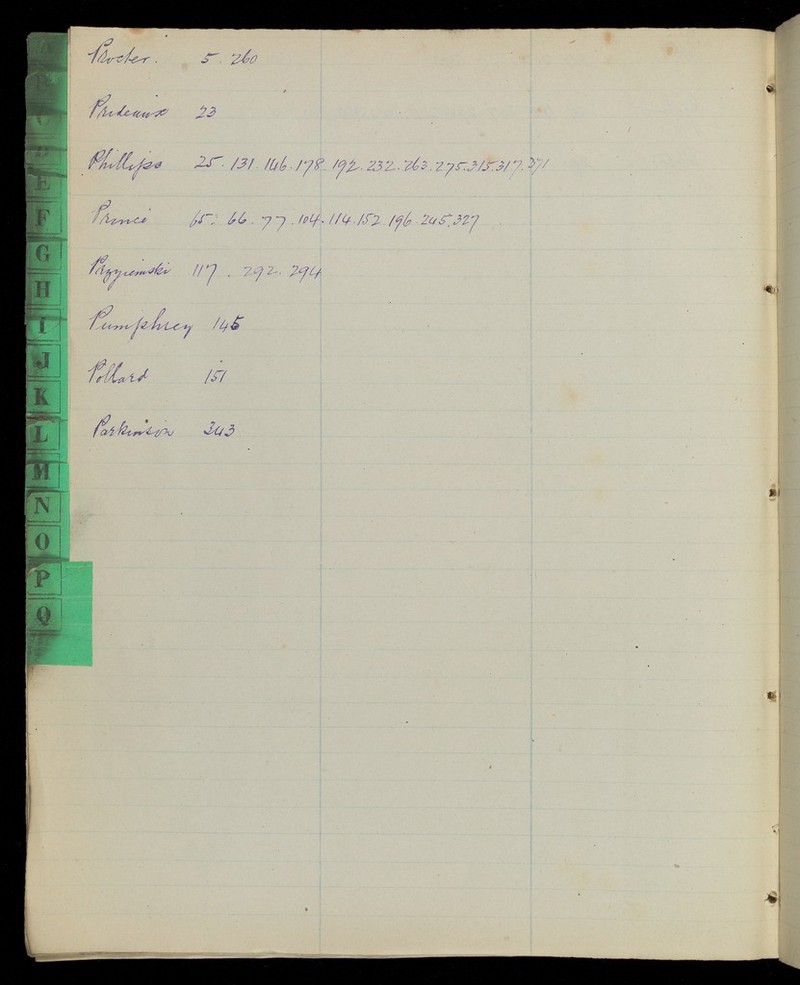 Procter. 5. 260
Prideaux 23
Phillips 25. 131. 146. 178. 192. 232. 263. 275. 315. 317. 371
Prince 65. 66. 77. 104. 114. 152. 196. 245. 327
Przyiemski 117. 292. 294
Pumphrey 145
Pollard 151
Parkinson 343
E
F
G
H
I
J
K
L
M
N
O
P
Q